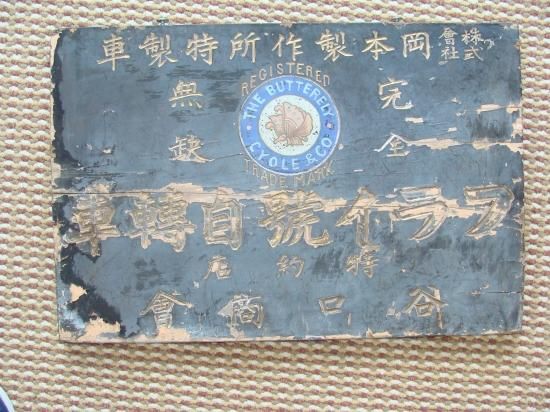 株式會社岡本製作所特製車
REGISTERED
THE BUTTERFLY
CYCLE & CO.
TRADE MARK
完全
無缺
フライ號自轉車
特約店
谷口商會